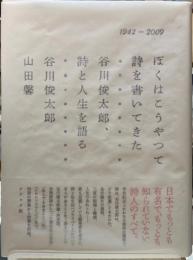 1942－2009
ぼくはこうやって
詩を書いてきた
谷川俊太郎、
詩と人生を語る
谷川俊太郎
山田馨
日本でもっとも
有名で、もっとも
知られていない
詩人のすべて。
ナナロク社